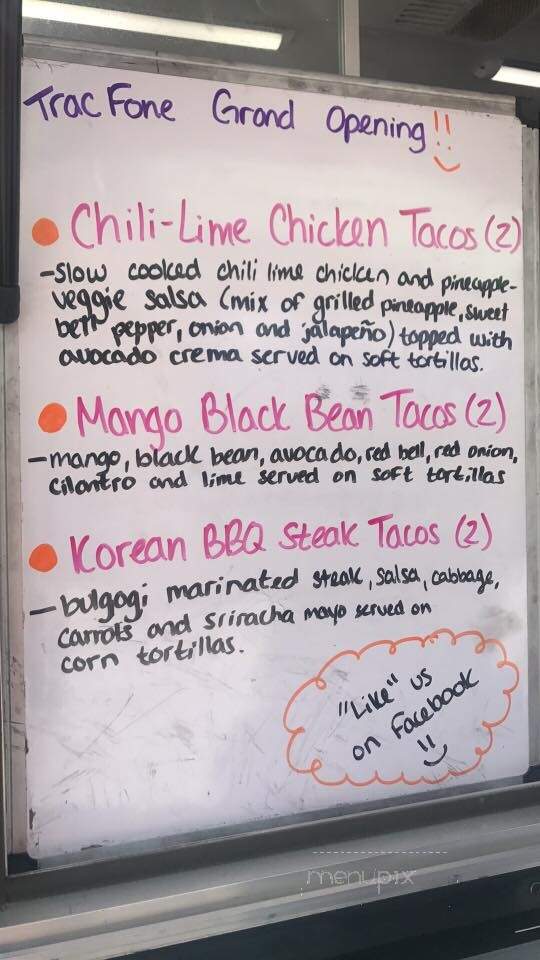 TracFone Grand Opening!!
Chili-Lime Chicken Tacos (2)
-slow cooked chili lime chicken and pineapple-
veggie salsa (mix of grilled pineapple, sweet
bell pepper, onion and jalapeño) topped with
avocado crema served on soft tortillas.
Mango Black Bean Tacos (2)
-mango, black bean, avocado, red bell, red onion,
cilantro and lime served on soft tortillas
Korean BBQ Steak Tacos (2)
-bulgogi marinated steak, salsa, cabbage,
carrots and sriracha mayo served on
corn tortillas.
"Like" us
on Facebook
!!
menupix